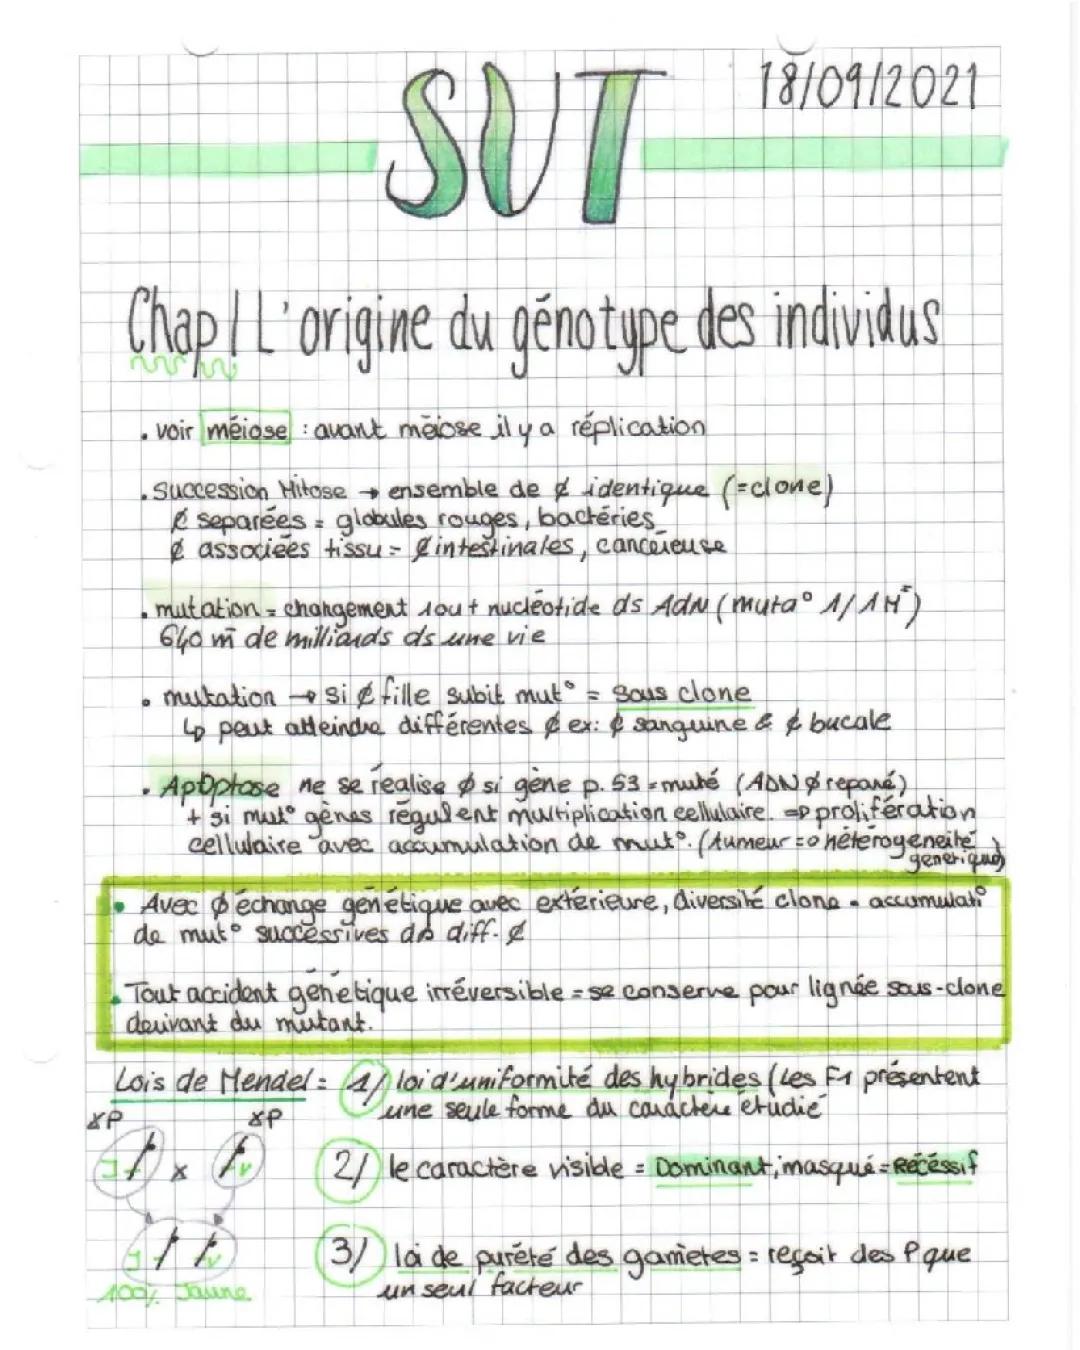 SVT
18/09/2021
Chap 1 L'origine du génotype des individus
. voir méiose : avant méiose il y a réplication
. succession Mitose → ensemble de ¢ identique (=clone)
¢ separées = globules rouges, bactéries
¢ associées tissu = ¢ intestinales, cancéreuse
. mutation = changement 1 ou + nucléotide ds ADN (muta° 1/1M)
640 m de milliards ds une vie
. mutation → si ¢ fille subit mut° = sous clone
↳ peut atteindre différentes ¢ ex: ¢ sanguine & ¢ bucale
. Apoptose ne se réalise ∅ si gène p.53 = muté (ADN ∅ reparé)
+ si mut° gènes régulent multiplication cellulaire. => prolifération
cellulaire avec accumulation de mut°. (tumeur => hétérogeneité
genetique)
• Avec ∅ échange génétique avec extérieure, diversité clone = accumulat°
de mut° successives ds diff. ¢
. Tout accident génétique irréversible = se conserve pour lignée sous-clone
derivant du mutant.
Lois de Mendel = 1/ loi d'uniformité des hybrides (Les F1 présentent
une seule forme du caractère étudié
XP XP
J x v
2/ le caractère visible = Dominant, masqué = Récéssif
J v
3/ loi de purété des gametes = reçoit des P que
un seul facteur
100% Jaune